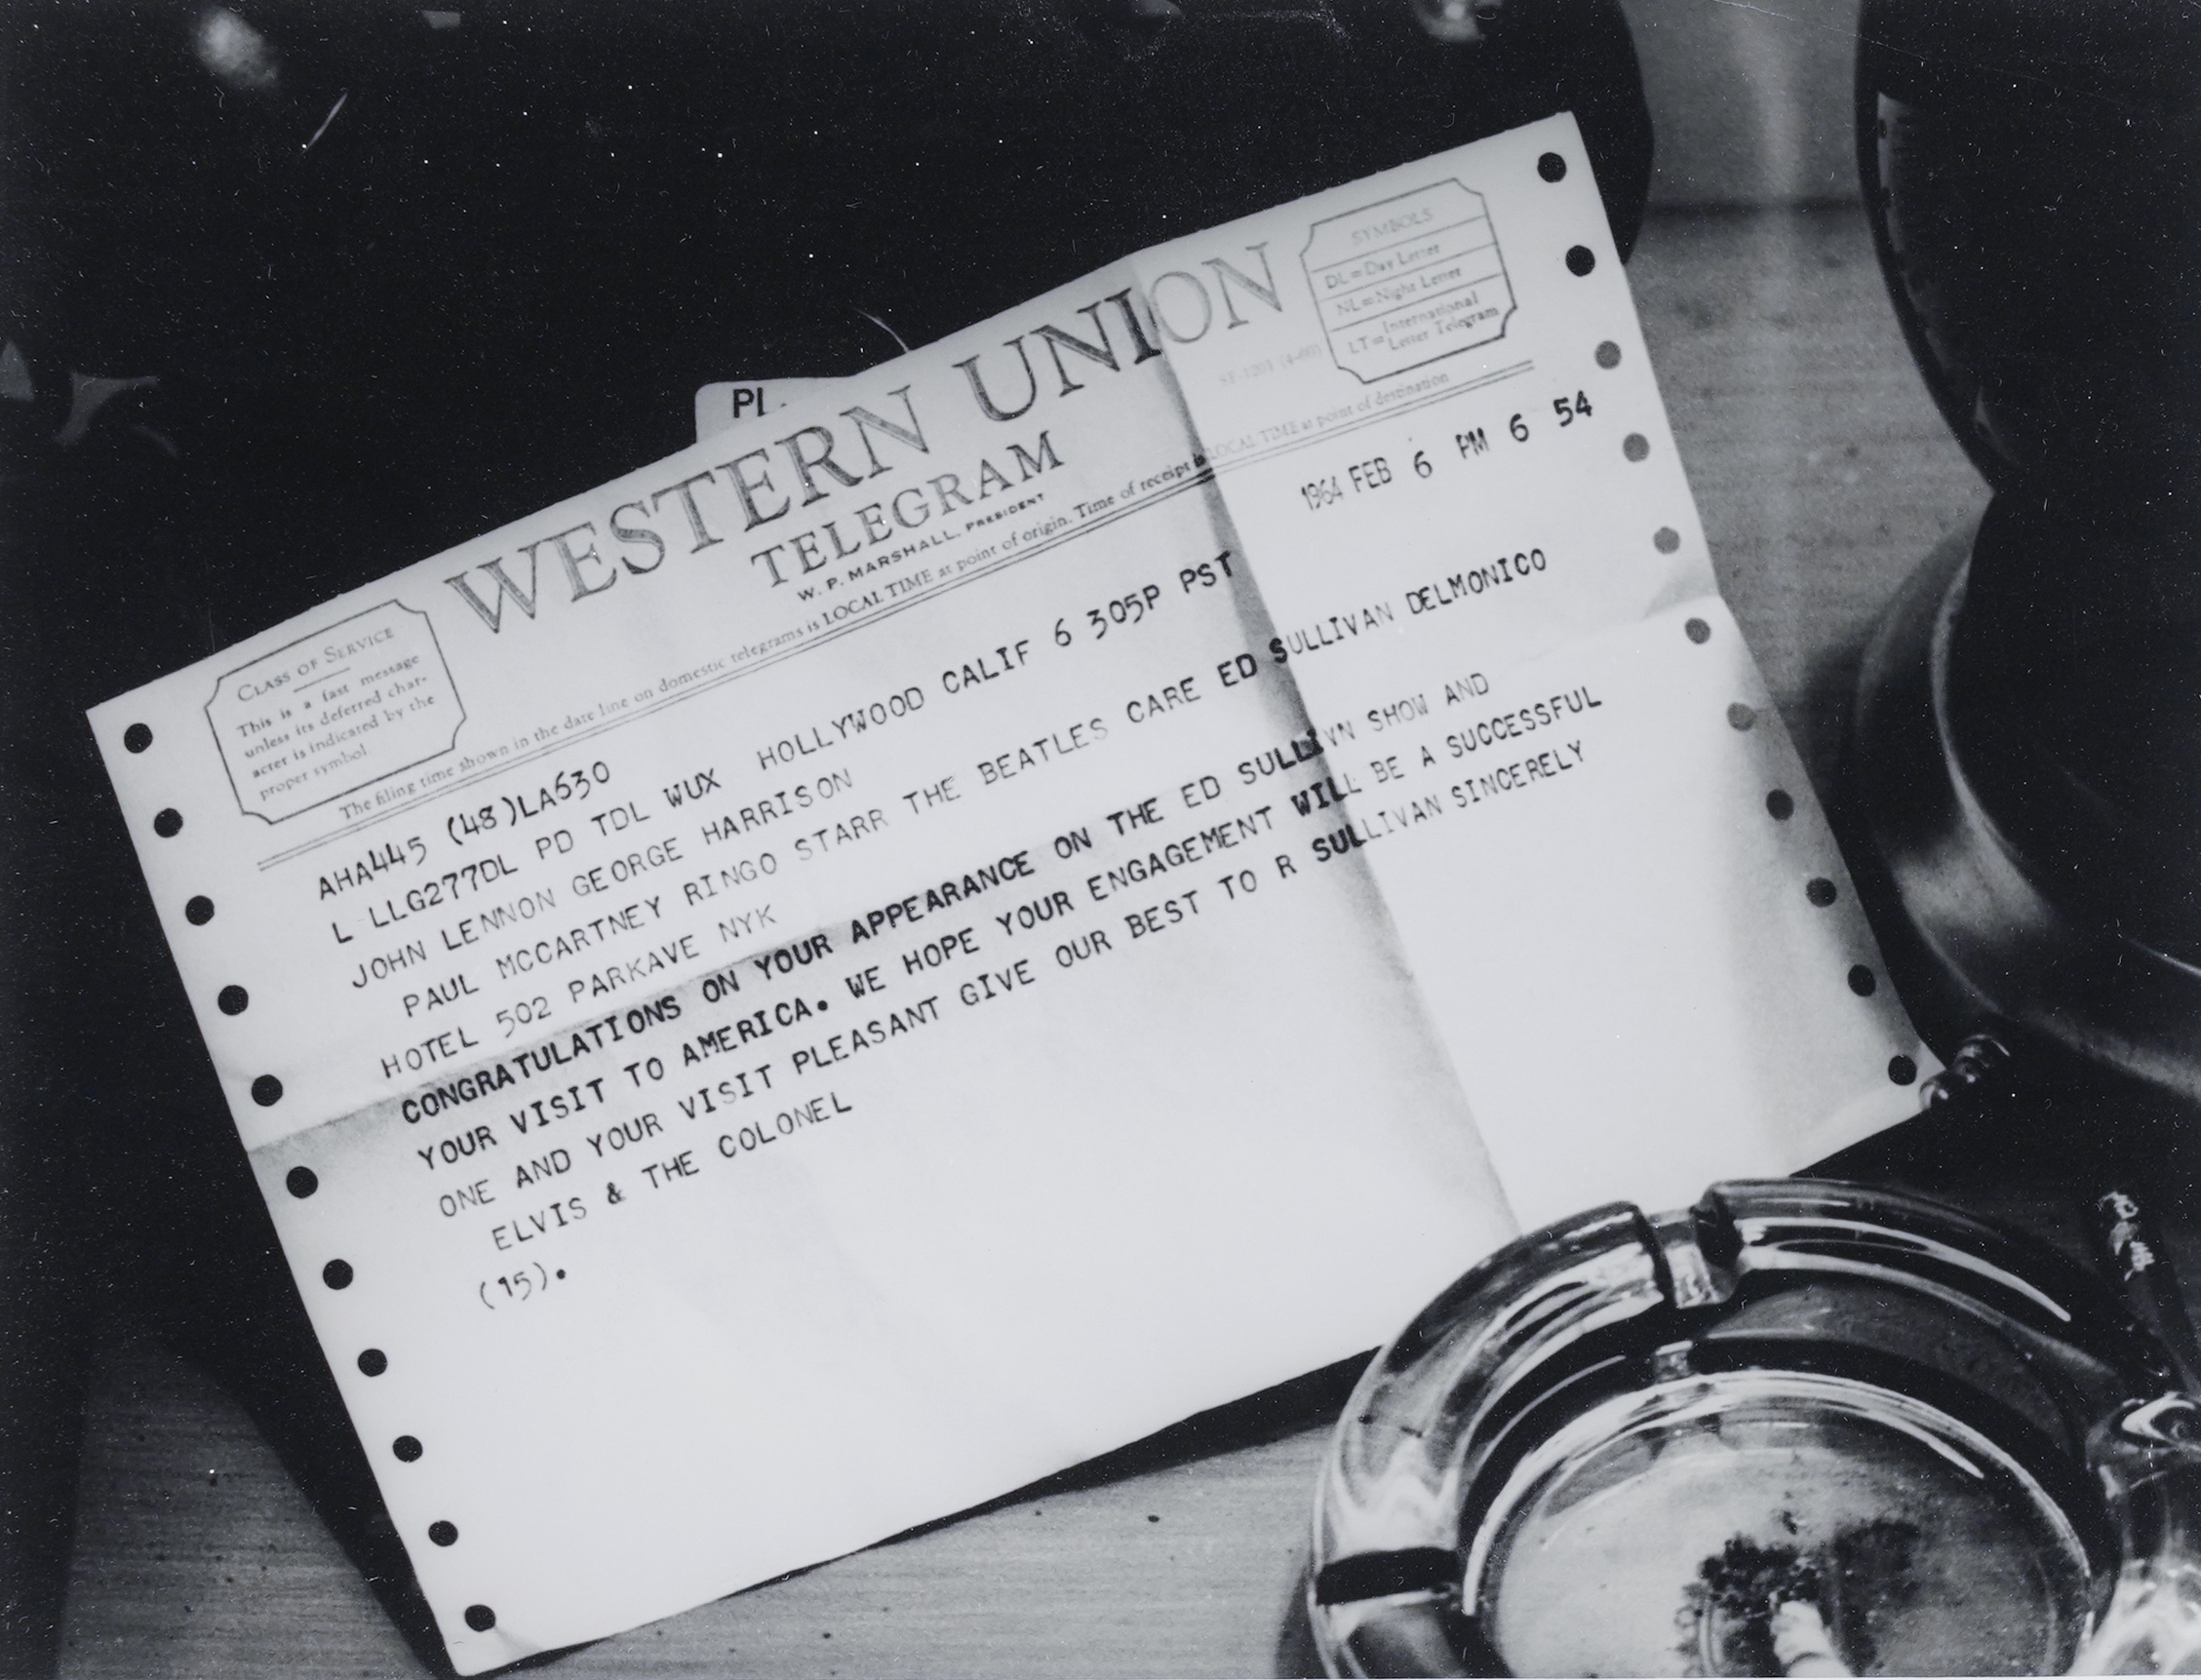 PL
WESTERN UNION
TELEGRAM
W. P. MARSHALL, PRESIDENT
CLASS OF SERVICE
This is a fast message
unless its deferred char-
acter is indicated by the
proper symbol.
SYMBOLS
DL=Day Letter
NL=Night Letter
LT=International
Letter Telegram
SF-1201 (4-60)
The filing time shown in the date line on domestic telegrams is LOCAL TIME at point of origin. Time of receipt is LOCAL TIME at point of destination
1964 FEB 6 PM 6 54
AHA445 (48)LA630
L LLG277DL PD TDL WUX HOLLYWOOD CALIF 6 305P PST
JOHN LENNON GEORGE HARRISON
PAUL MCCARTNEY RINGO STARR THE BEATLES CARE ED SULLIVAN DELMONICO
HOTEL 502 PARKAVE NYK
CONGRATULATIONS ON YOUR APPEARANCE ON THE ED SULLIVN SHOW AND
YOUR VISIT TO AMERICA. WE HOPE YOUR ENGAGEMENT WILL BE A SUCCESSFUL
ONE AND YOUR VISIT PLEASANT GIVE OUR BEST TO R SULLIVAN SINCERELY
ELVIS & THE COLONEL
(15).